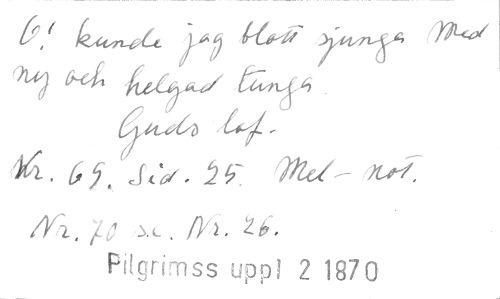 O! kunde jag blott sjunga Med
ny och helgad tunga.
Guds lof.
Nr. 69. Sid. 25. Mel-not.
Nr. 70 se. Nr. 26.
Pilgrimss uppl 2 1870